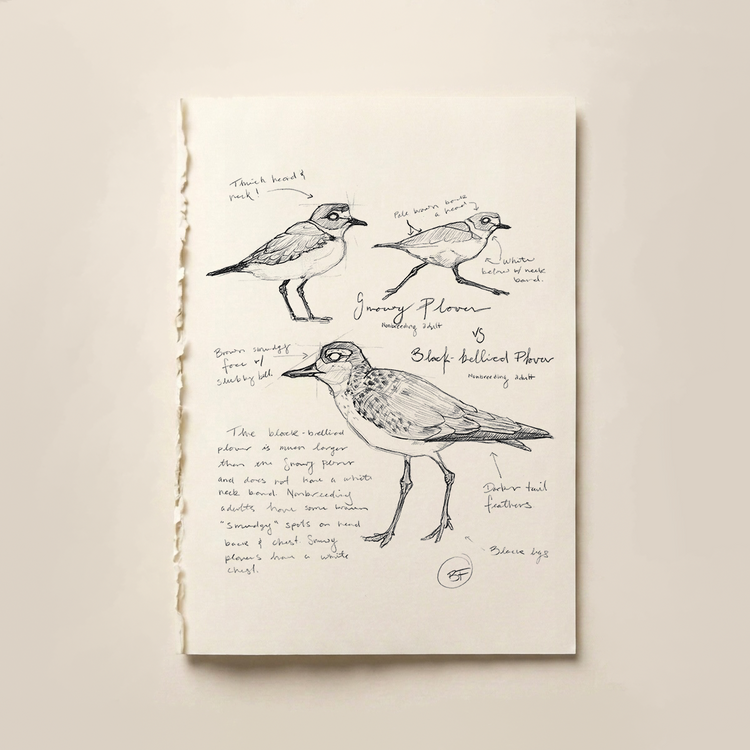 Thick head &
neck!
Pale brown back
& head
White
below w/ neck
band.
Snowy Plover
Nonbreeding adult
VS
Black-bellied Plover
Nonbreeding adult
Brown smudgy
face w/
stubby bill.
The black-bellied
plover is much larger
than the Snowy plover
and does not have a white
neck band. Nonbreeding
adults have some brown
"smudgy" spots on head
back & chest. Snowy
plovers have a white
chest.
Darker tail
feathers
Black legs
BF